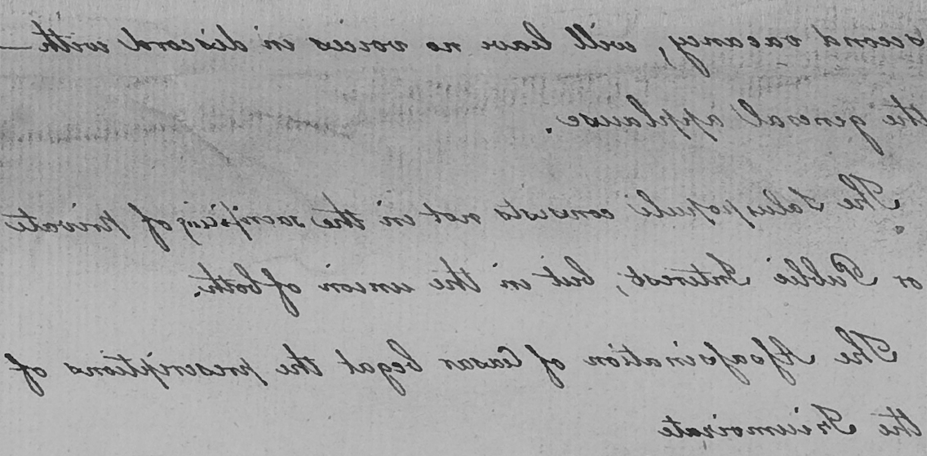 second vacancy, will leave no voices in discord with
the general applause.
The Salus populi consists not in the sacrificing of private
or Public Interest, but in the union of both.
The Assassination of Cæsar begat the proscriptions of
the Triumvirate